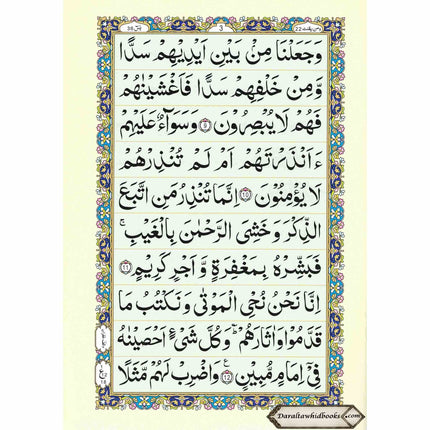 ومن يقنت ٢٢
3
يٰسٓ ٣٦
وَجَعَلْنَا مِنْۢ بَيْنِ اَيْدِيْهِمْ سَدًّا
وَّمِنْ خَلْفِهِمْ سَدًّا فَاَغْشَيْنٰهُمْ
فَهُمْ لَا يُبْصِرُوْنَ ۝٩ وَسَوَآءٌ عَلَيْهِمْ
ءَاَنْذَرْتَهُمْ اَمْ لَمْ تُنْذِرْهُمْ
لَا يُؤْمِنُوْنَ ۝١٠ اِنَّمَا تُنْذِرُ مَنِ اتَّبَعَ
الذِّكْرَ وَخَشِيَ الرَّحْمٰنَ بِالْغَيْبِ ۚ
فَبَشِّرْهُ بِمَغْفِرَةٍ وَّاَجْرٍ كَرِيْمٍ ۝١١
اِنَّا نَحْنُ نُحْيِ الْمَوْتٰى وَنَكْتُبُ مَا
قَدَّمُوْا وَاٰثَارَهُمْ ؕ وَكُلَّ شَيْءٍ اَحْصَيْنٰهُ
فِيْٓ اِمَامٍ مُّبِيْنٍ ۝١٢ ع وَاضْرِبْ لَهُمْ مَّثَلًا
Daraltawhidbooks.com